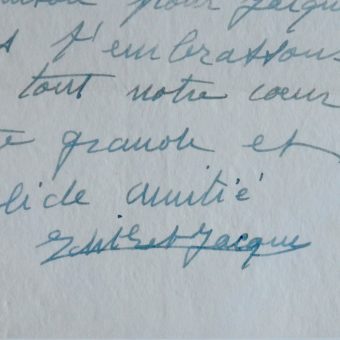 pour Jacqu
t'embrassons
tout notre cœur
e grande et
lide amitié
et Jacques